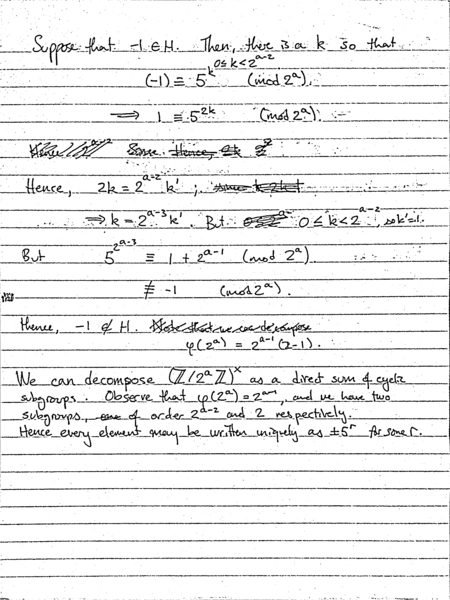 Suppose that -1 ∈ H. Then, there is a k so that
0≤k<2^{a-2}
(-1) ≡ 5^k (mod 2^a).
⟹ 1 ≡ 5^{2k} (mod 2^a).
Hence, 2k = 2^{a-2} k' ;
⟹ k = 2^{a-3} k'. But 0 ≤ k < 2^{a-2}, so k'=1.
But 5^{2^{a-3}} ≡ 1 + 2^{a-1} (mod 2^a)
≢ -1 (mod 2^a).
Hence, -1 ∉ H.
φ(2^a) = 2^{a-1}(2-1).
We can decompose (ℤ/2^aℤ)^× as a direct sum of cyclic
subgroups. Observe that φ(2^a) = 2^{a-1}, and we have two
subgroups, of order 2^{a-2} and 2 respectively.
Hence every element may be written uniquely as ±5^r for some r.